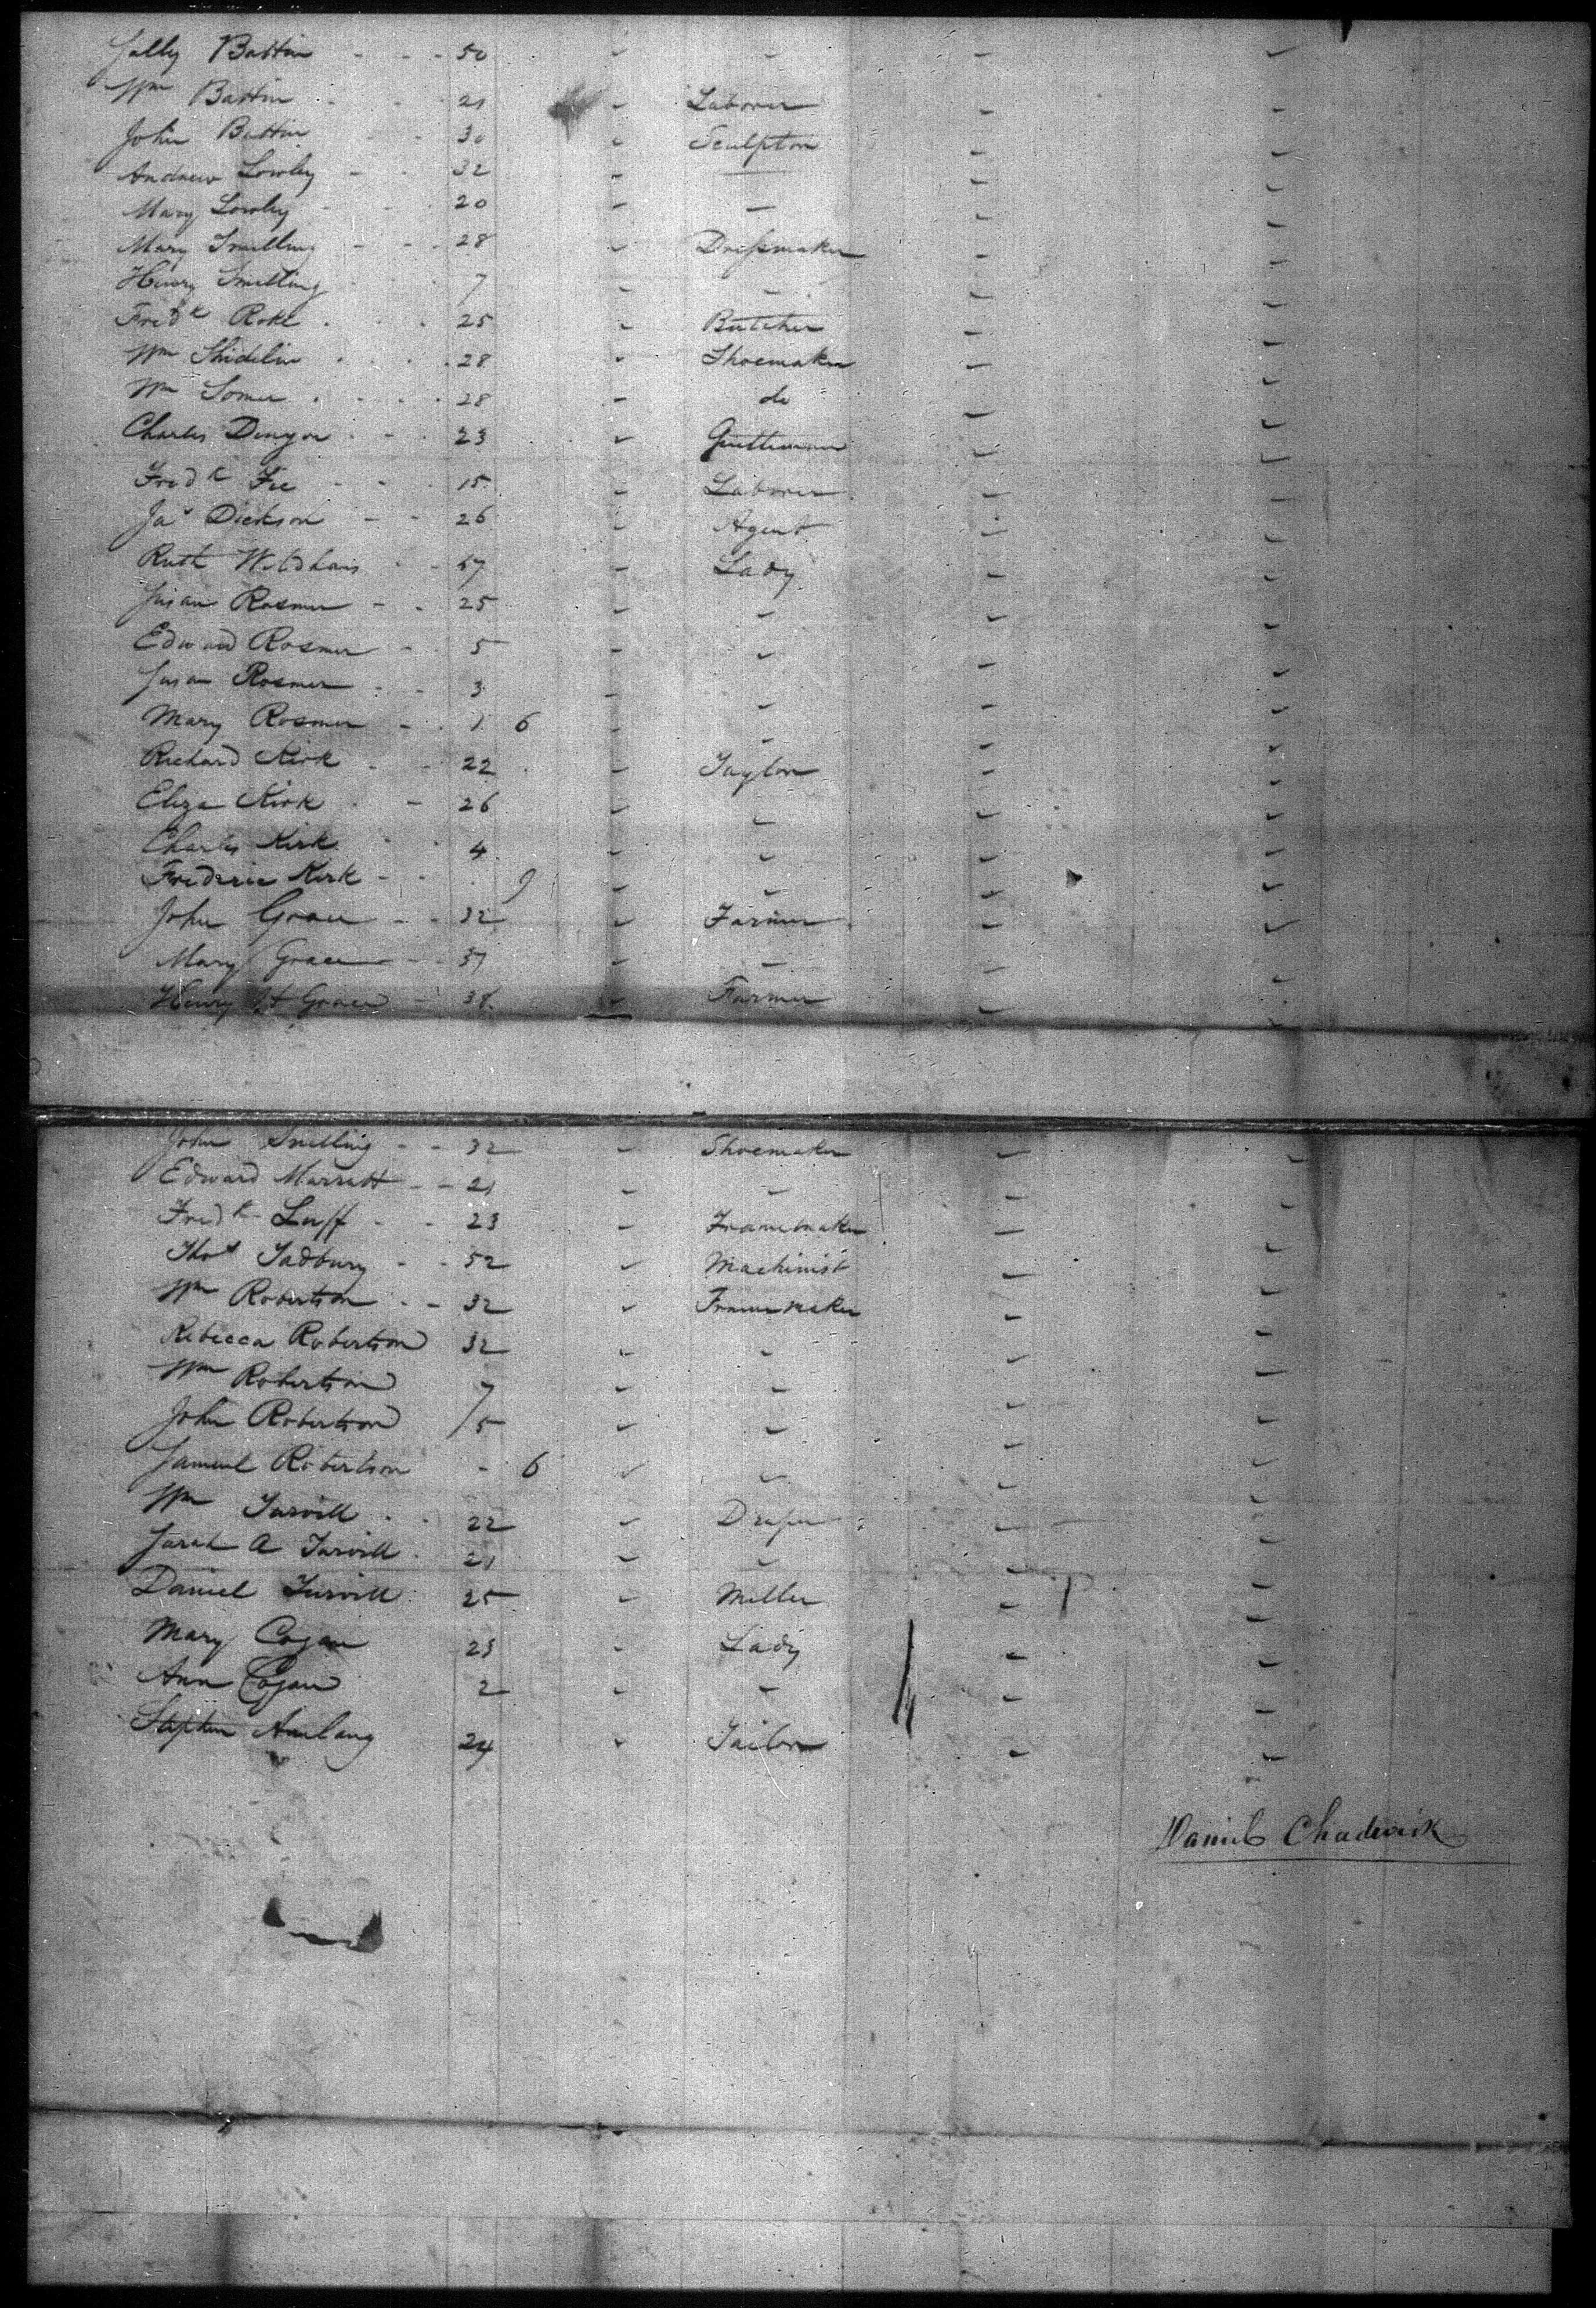 Sally Battin - - - 50 " " " "
Wm Battin 21 " Laborer " "
John Battin 30 " Sculptor " "
Andrew Lowley - 32 " — " "
Mary Lowley 20 " — " "
Mary Snelling - - 28 " Dressmaker " "
Henry Snelling 7 " " " "
Fredk Roke 25 " Butcher " "
Wm 28 " Shoemaker " "
Wm Somer 28 " do " "
Charles 23 " Gentleman " "
Fredk Fee - - 15 " Laborer " "
Jas Dickson - - 26 " Agent " "
Ruth 57 " Lady " "
Susan Rosmer - 25 " " " "
Edward Rosmer - 5 " " " "
Susan Rosmer - 3 " " " "
Mary Rosmer - 1 6 " " " "
Richard Kirk - 22 " Taylor " "
Eliza Kirk - 26 " " " "
Charles Kirk 4 " " " "
Frederic Kirk - 9 " " " "
John Grace - - 32 " Farmer " "
Mary Grace - - 37 " " " "
Henry Grace - 38 " Farmer " "
John Snelling - - 32 " Shoemaker " "
Edward Marratt - - 21 " " " "
Fredk Luff - - 23 " Framemaker " "
Thos Tadbury - - 52 " Machinist " "
Wm Robertson - - 32 " Framemaker " "
Rebecca Robertson 32 " " " "
Wm Robertson 7 " " " "
John Robertson 5 " " " "
Samuel Robertson - 6 " " " "
Wm Turvill 22 " Draper " "
Sarah A Turvill 21 " " " "
Daniel Turvill 25 " Miller " "
Mary Cogan 23 " Lady " "
Ann Cogan 2 " " " "
Stephen 24 " Tailor " "
Daniel Chadwick